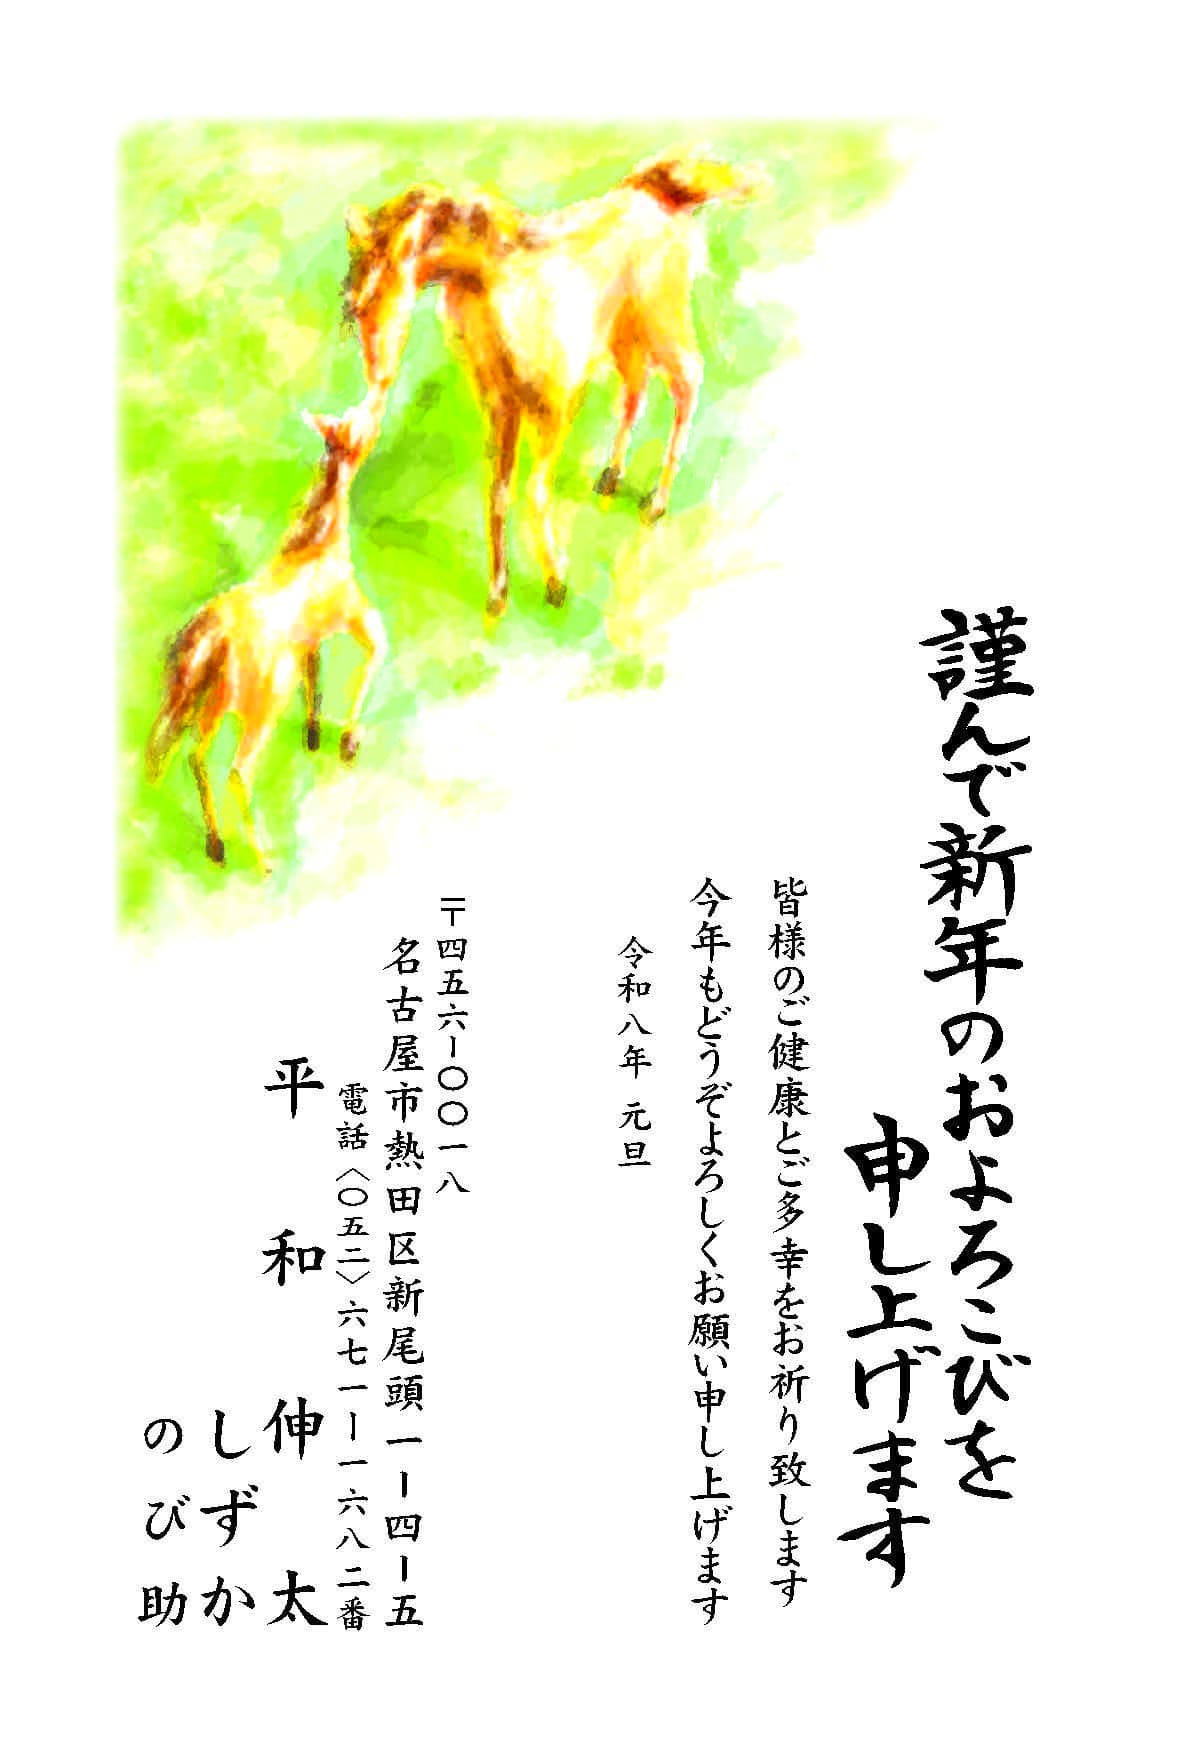 謹んで新年のおよろこびを
申し上げます
皆様のご健康とご多幸をお祈り致します
今年もどうぞよろしくお願い申し上げます
令和八年 元旦
〒四五六ー〇〇一八
名古屋市熱田区新尾頭一ー四ー五
電話〈〇五二〉六七一ー一六八二番
平和 伸太
しずか
のび助